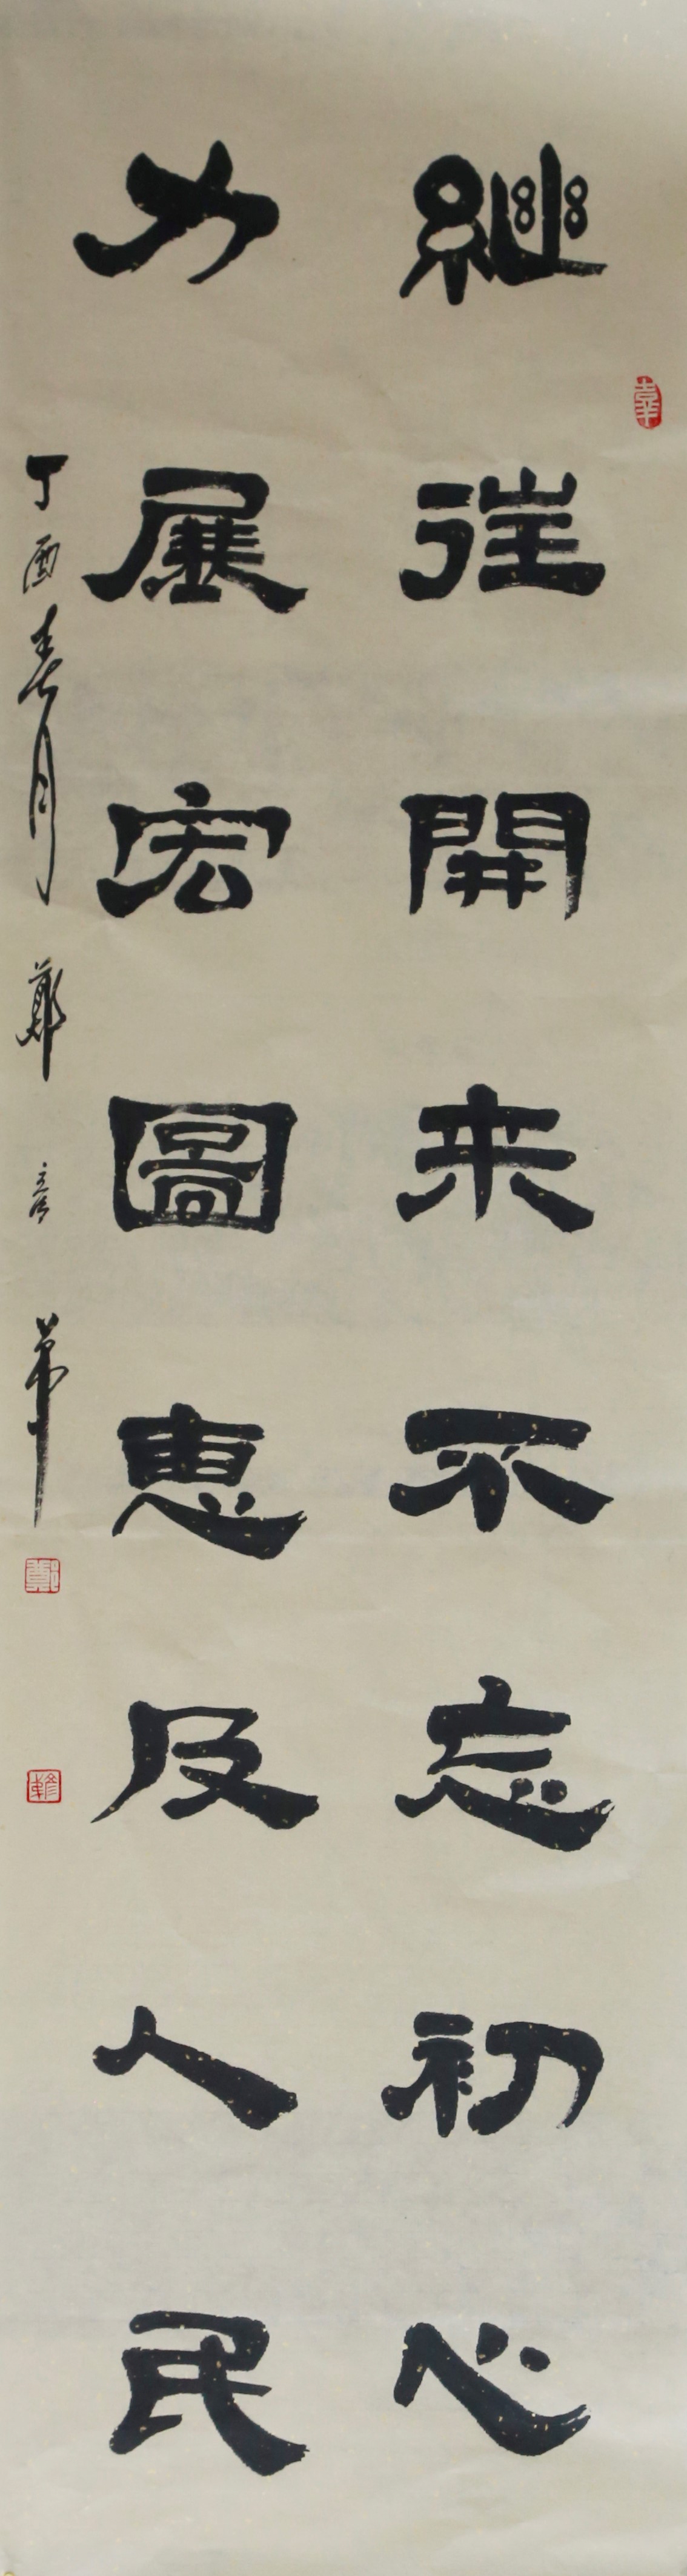 繼往開来不忘初心
力展宏圖惠及人民
丁酉春月鄭